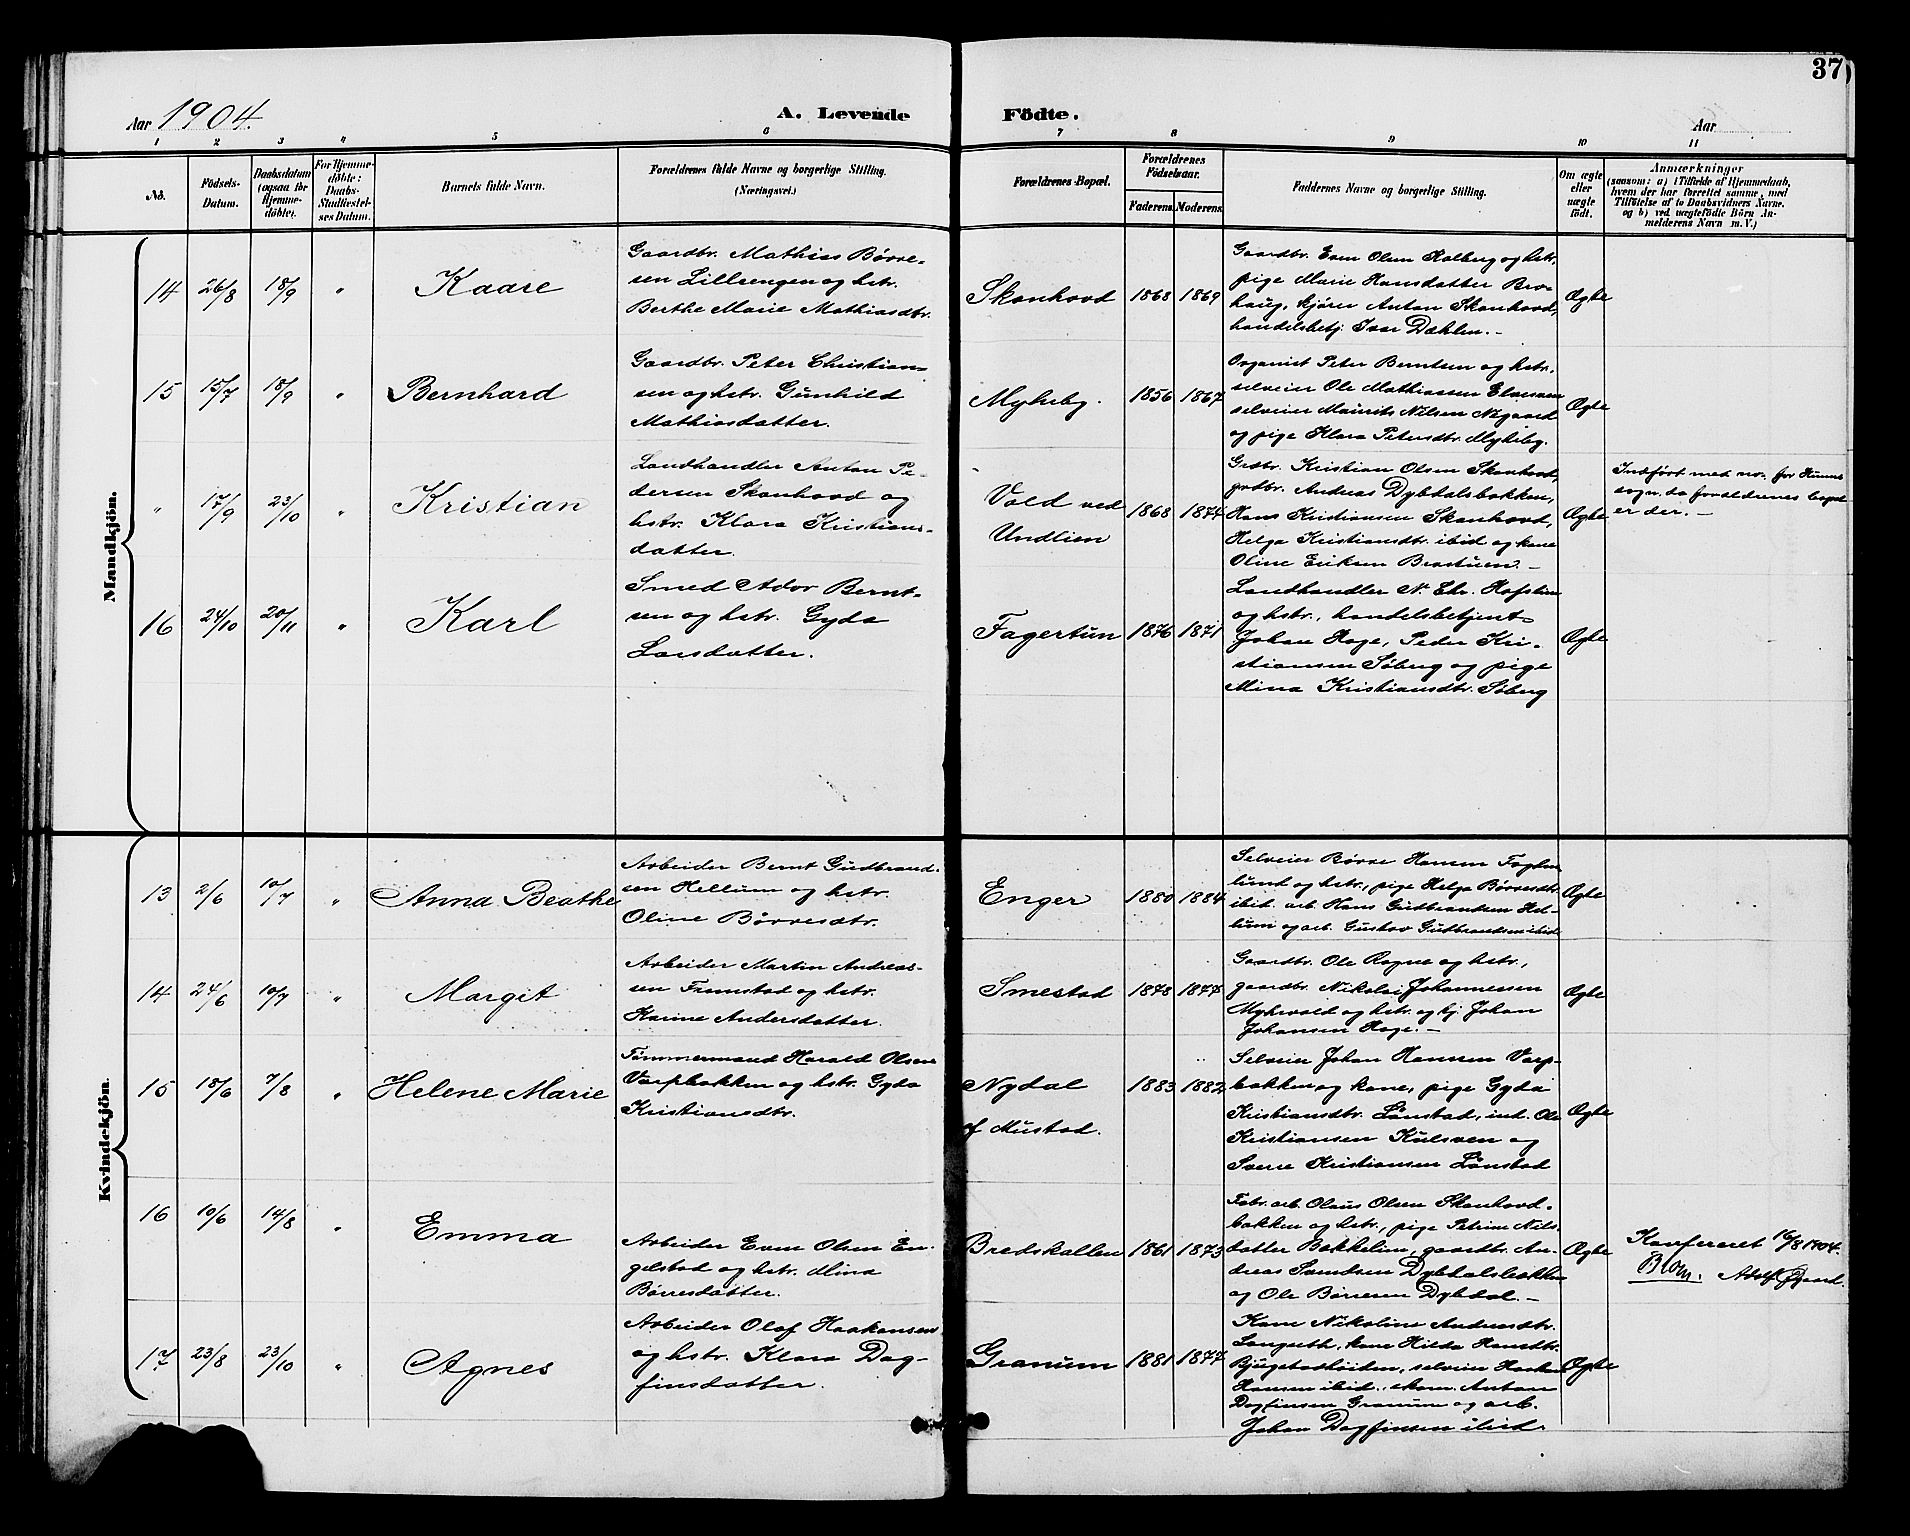 37
Aar 1904.
A. Levende Födte.
Aar
1 2 3 4 5 6 7 8 9 10 11
No.
Födsels-
Datum.
Daabsdatum
(ogsaa for
Hjemme-
döbte).
For Hjemme-
döbte:
Daabs-
Stadfæstel-
ses Datum.
Barnets fulde Navn.
Forældrenes fulde Navne og borgerlige Stilling.
(Næringsvei.)
Forældrenes Bopæl.
Forældrenes
Födselsaar.
Faderens. Moderens.
Faddernes Navne og borgerlige Stilling.
Om ægte
eller
uægte
födt.
Anmærkninger
(saasom: a) i Tilfælde af Hjemmedaab,
hvem der har forrettet samme, med
Tilföielse af to Daabsvidners Navne.
og b) ved uægtefödte Börn An-
melderens Navn m. V.)
Mandkjön.
14 26/8 18/9 " Kaare
Gaardbr. Mathias Børre-
sen Lilleengen og hstr.
Berthe Marie Mathiasdtr.
Skonhovd 1868 1869
Gaardbr. Even Olsen Holberg og hstr,
pige Marie Hansdatter Bro-
haug, kjører Anton Skonhovd,
handelsbetj. Ivar Dæhlen. -
Ægte
15 15/7 18/9 " Bernhard
Gaardbr. Peter Christian-
sen og hstr. Gunhild
Mathiasdatter.
Mykeby. 1856 1867
Organist Peter Berntsen og hstr.
selveier Ole Mathiassen
selveier Maurits Nilsen Nygaard
og pige Klara Petersdtr. Mykeby.
Ægte
" 17/9 23/10 " Kristian
Landhandler Anton Pe-
dersen Skonhovd og
hstr. Klara Kristians-
datter.
Vold ved
Undlien
1868 1874
Grdbr. Kristian Olsen Skonhovd,
grdbr. Andreas Dybdalsbakken,
Hans Kristiansen Skonhovd,
Helga Kristiansdtr. ibid og kone
Oline Eriksen Brostuen -
Ægte
Indført med no. for Hunns
sogn, da forældrenes bopæl
er der. -
16 24/10 20/11 " Karl
Smed Ador Bernt-
sen og hstr. Gyda
Larsdatter.
Fagertun 1876 1871
Landhandler N. Chr. Hofslien
og hstr., handelsbetjent
Johan Hoge, Peder Kri-
stiansen Søberg og pige
Mina Kristiansdtr. Søberg
Ægte
Kvindekjön.
13 2/6 10/7 " Anna Beathe
Arbeider Bernt Gudbrand-
sen Hellum og hstr.
Oline Børresdtr.
Enger 1880 1884
Selveier Børre Hansen
lund og hstr., pige Helga Børresdtr.
ibid. arb. Hans Gudbrandsen Hel-
lum og arb. Gustav Gudbrandsen ibid
Ægte
14 24/6 10/7 " Margit
Arbeider Martin Andreas-
sen Framstad og hstr.
Karine Andersdatter.
Smestad 1878 1877
Gaardbr. Ole Rogne og hstr.,
gaardbr. Nikolai Johannessen
Myhrvold og hstr. og kj. Johan
Johansen Hoge. -
Ægte
15 18/6 7/8 " Helene Marie
Tømmermand Harald Olsen
Varpbakken og hstr. Gyda
Kristiansdtr.
Nydal
af Mustad.
1883 1882
Selveier Johan Hansen Varp-
bakken og kone, pige Gyda
Kristiansdtr. Lønstad, ind. Ole
Kristiansen Kulsveen og
Sverre Kristiansen Lønstad
Ægte
16 10/6 14/8 " Emma
Arbeider Even Olsen En-
gelstad og hstr. Mina
Børresdatter.
Bredskallen 1861 1873
Fabr. arb. Olaus Olsen Skonhovd-
bakken og hstr., pige Petrine Nils-
datter Bakkelien, gaardbr. An-
dreas Dybdalsbakken
og Ole Børresen Dybdal. -
Ægte
Konfereret 16/8 1904.
Blom. Adolf
17 23/8 23/10 " Agnes
Arbeider Olaf Haakensen
og hstr. Klara Dag-
finsdatter.
Granum 1881 1877
Kone Nikoline Andreasdtr.
Langseth, kone Hilda Hansdtr.
Bjugstadheiden, selveier Haaken
Hansen ibid., Anton
Dagfinsen Granum og arb.
Johan Dagfinsen ibid.
Ægte